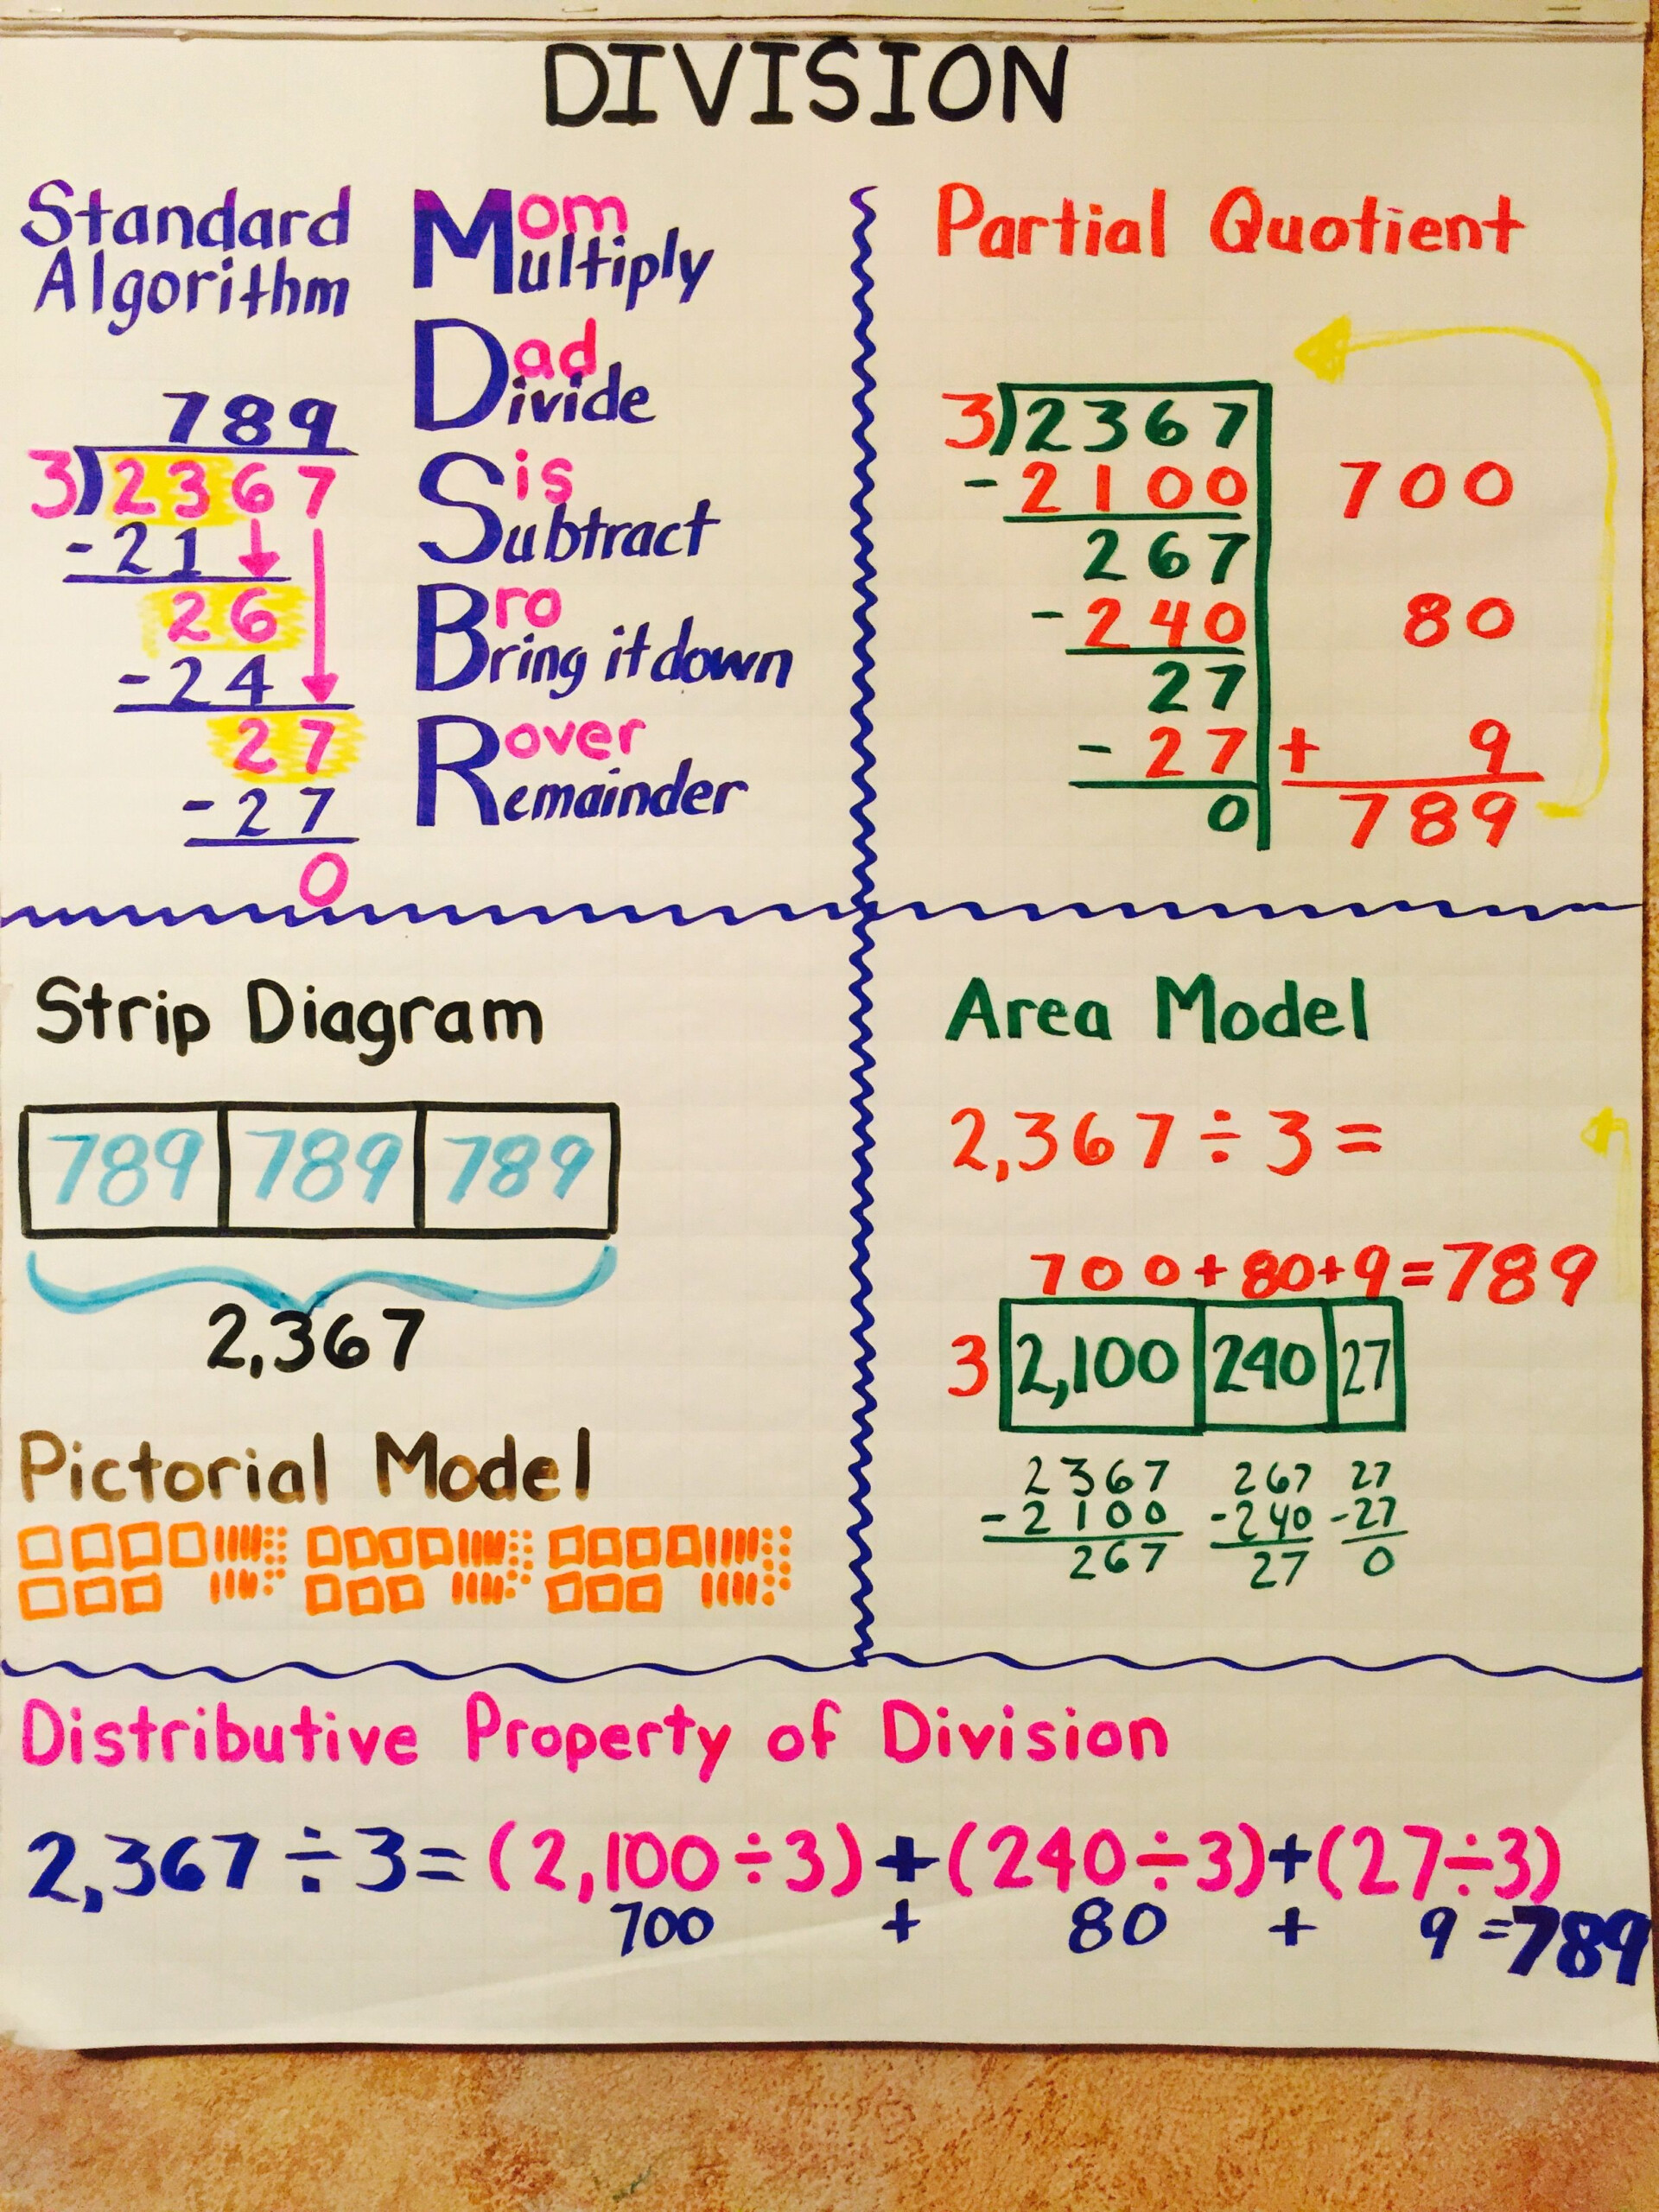 DIVISION
Standard
Algorithm
789
3)2367
-21
26
-24
27
-27
0
Mom
Multiply
Dad
Divide
is
Subtract
Bro
Bring it down
Rover
Remainder
Partial Quotient
3)2367
-2100 700
267
-240 80
27
-27 + 9
0 789
Strip Diagram
789 789 789
2,367
Pictorial Model
Area Model
2,367÷3=
700+80+9=789
3 2,100 240 27
2367 267 27
-2100 -240 -27
267 27 0
Distributive Property of Division
2,367÷3=(2,100÷3)+(240÷3)+(27÷3)
700 + 80 + 9 =789